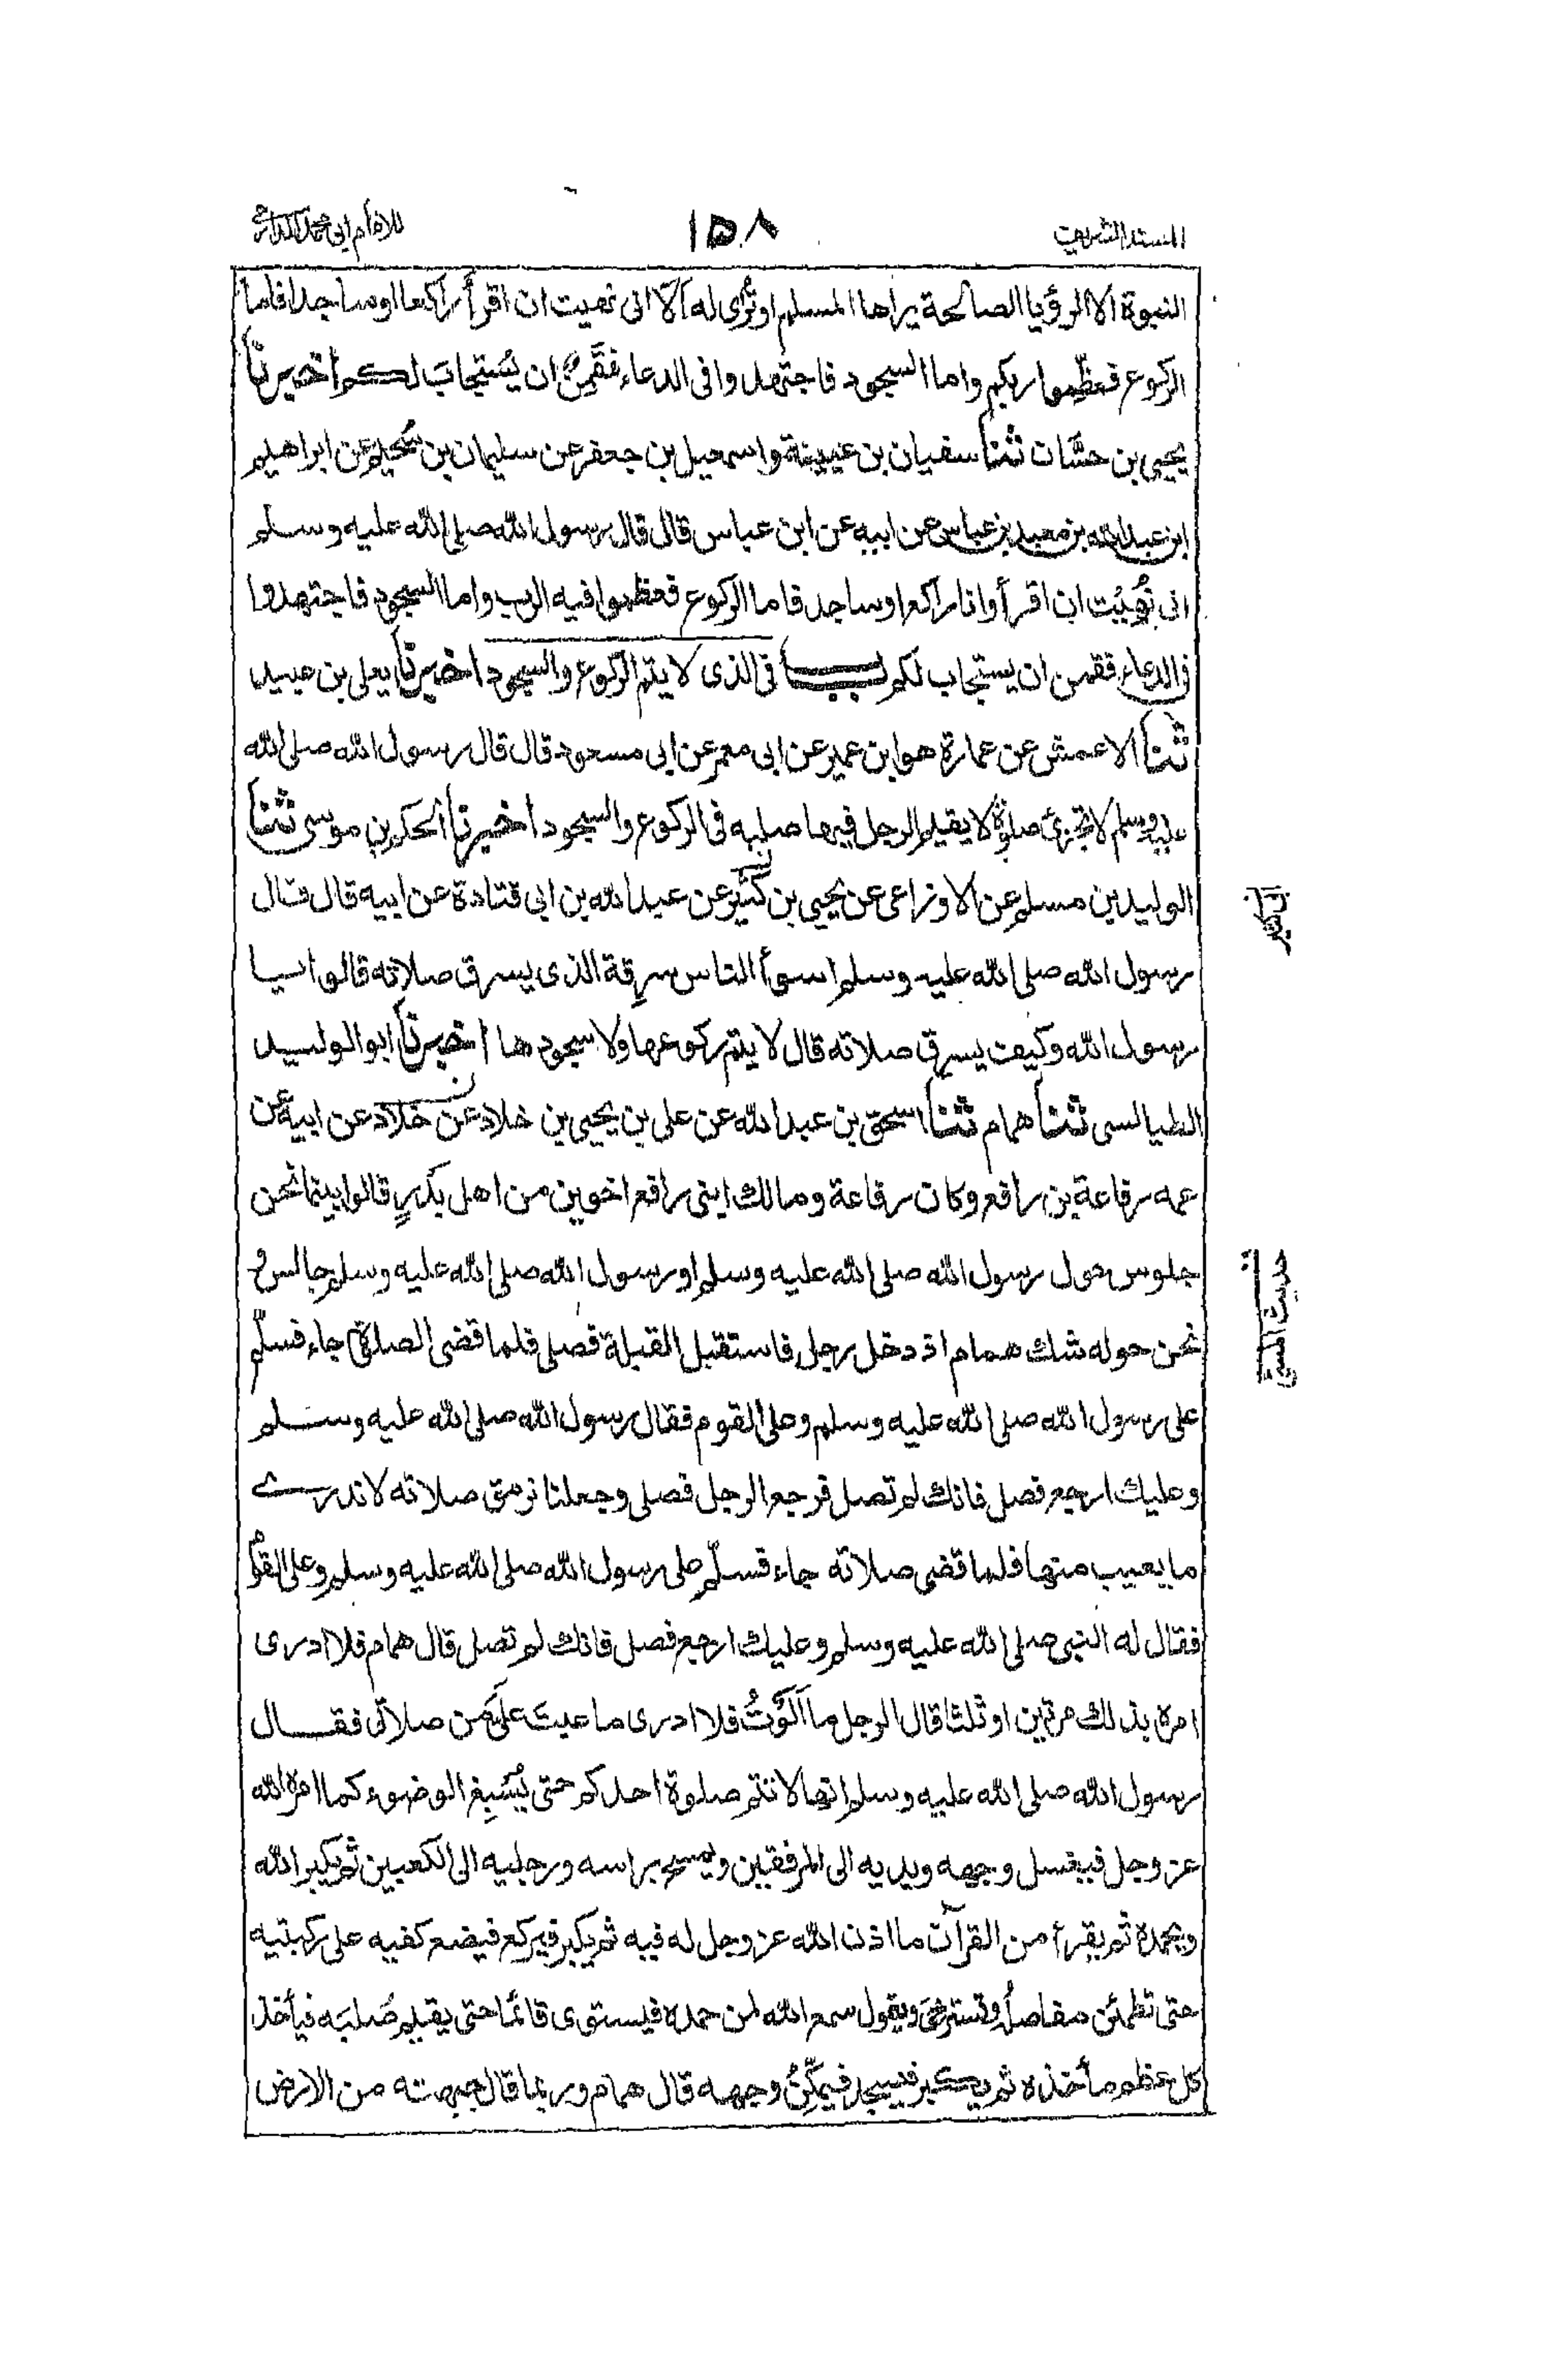 المسند الشريف
١٥٨
للامام ابي محمد الدارمي
النبوة الا الرؤيا الصالحة يراها المسلم او تُرٰى له الا انى نهيت ان اقرأ راكعا او ساجدا فاما
الركوع فعظّموا ربكم واما السجود فاجتهدوا فى الدعاء فقَمِنٌ ان يُستجابَ لكم اخبرنا
يحيى بن حسّان ثنا سفيان بن عيينة واسمعيل بن جعفر عن سليمان بن سُحيم عن ابراهيم
ابن عبدالله بن معبد بن عباس عن ابيه عن ابن عباس قال قال رسول الله صلى الله عليه وسلم
انى نُهِيْت ان اقرأ وانا راكع او ساجد فاما الركوع فعظموا فيه الرب واما السجود فاجتهدوا
فى الدعاء فقمن ان يستجاب لكم باب فى الذى لا يتم الركوع والسجود اخبرنا يعلى بن عبيد
ثنا الاعمش عن عمارة هو ابن عمير عن ابى معمر عن ابى مسعود قال قال رسول الله صلى الله
عليه وسلم لا تجزئ صلوة لا يقيم الرجل فيها صلبه فى الركوع والسجود اخبرنا الحكم بن موسى ثنا
الوليد بن مسلم عن الاوزاعى عن يحيى بن كثير عن عبدالله بن ابى قتادة عن ابيه قال قال
ابى كثير
رسول الله صلى الله عليه وسلم اسوأ الناس سرِقة الذى يسرق صلاته قالوا يا
رسول الله وكيف يسرق صلاته قال لا يتم ركوعها ولا سجودها اخبرنا ابو الوليد
الطيالسى ثنا همام ثنا اسحق بن عبدالله عن على بن يحيى بن خلاد عن خلاد عن ابيه عن
عمه رفاعة بن رافع وكان رفاعة ومالك ابنى رافع اخوين من اهل بدرٍ قالوا بينما نحن
جلوس حول رسول الله صلى الله عليه وسلم او رسول الله صلى الله عليه وسلم جالس و
حديث المسئ
نحن حوله شك همام اذ دخل رجل فاستقبل القبلة فصلى فلما قضى الصلوة جاء فسلّم
على رسول الله صلى الله عليه وسلم وعلى القوم فقال رسول الله صلى الله عليه وسلم
وعليك ارجع فصل فانك لم تصل فرجع الرجل فصلى وجعلنا نرمق صلاته لا ندرى
ما يعيب منها فلما قضى صلاته جاء فسلّم على رسول الله صلى الله عليه وسلم وعلى القوم
فقال له النبى صلى الله عليه وسلم وعليك ارجع فصل فانك لم تصل قال همام فلا ادرى
امره بذلك مرتين او ثلثا قال الرجل ما اَلَوْتُ فلا ادرى ما عبت علىّ من صلاتى فقال
رسول الله صلى الله عليه وسلم انها لا تتم صلوة احدكم حتى يُسْبِغ الوضوء كما امره الله
عز وجل فيغسل وجهه ويديه الى المرفقين ويمسح براسه ورجليه الى الكعبين ثم يكبر الله
ويحمده ثم يقرأ من القرآن ما اذن الله عز وجل له فيه ثم يكبر فيركع فيضع كفيه على ركبتيه
حتى تطمئن مفاصله وتسترخى ويقول سمع الله لمن حمده فيستوى قائما حتى يقيم صُلبَه فيأخذ
كل عظم مأخذه ثم يكبر فيسجد فيمكّنُ وجهه قال همام وربما قال جبهته من الارض